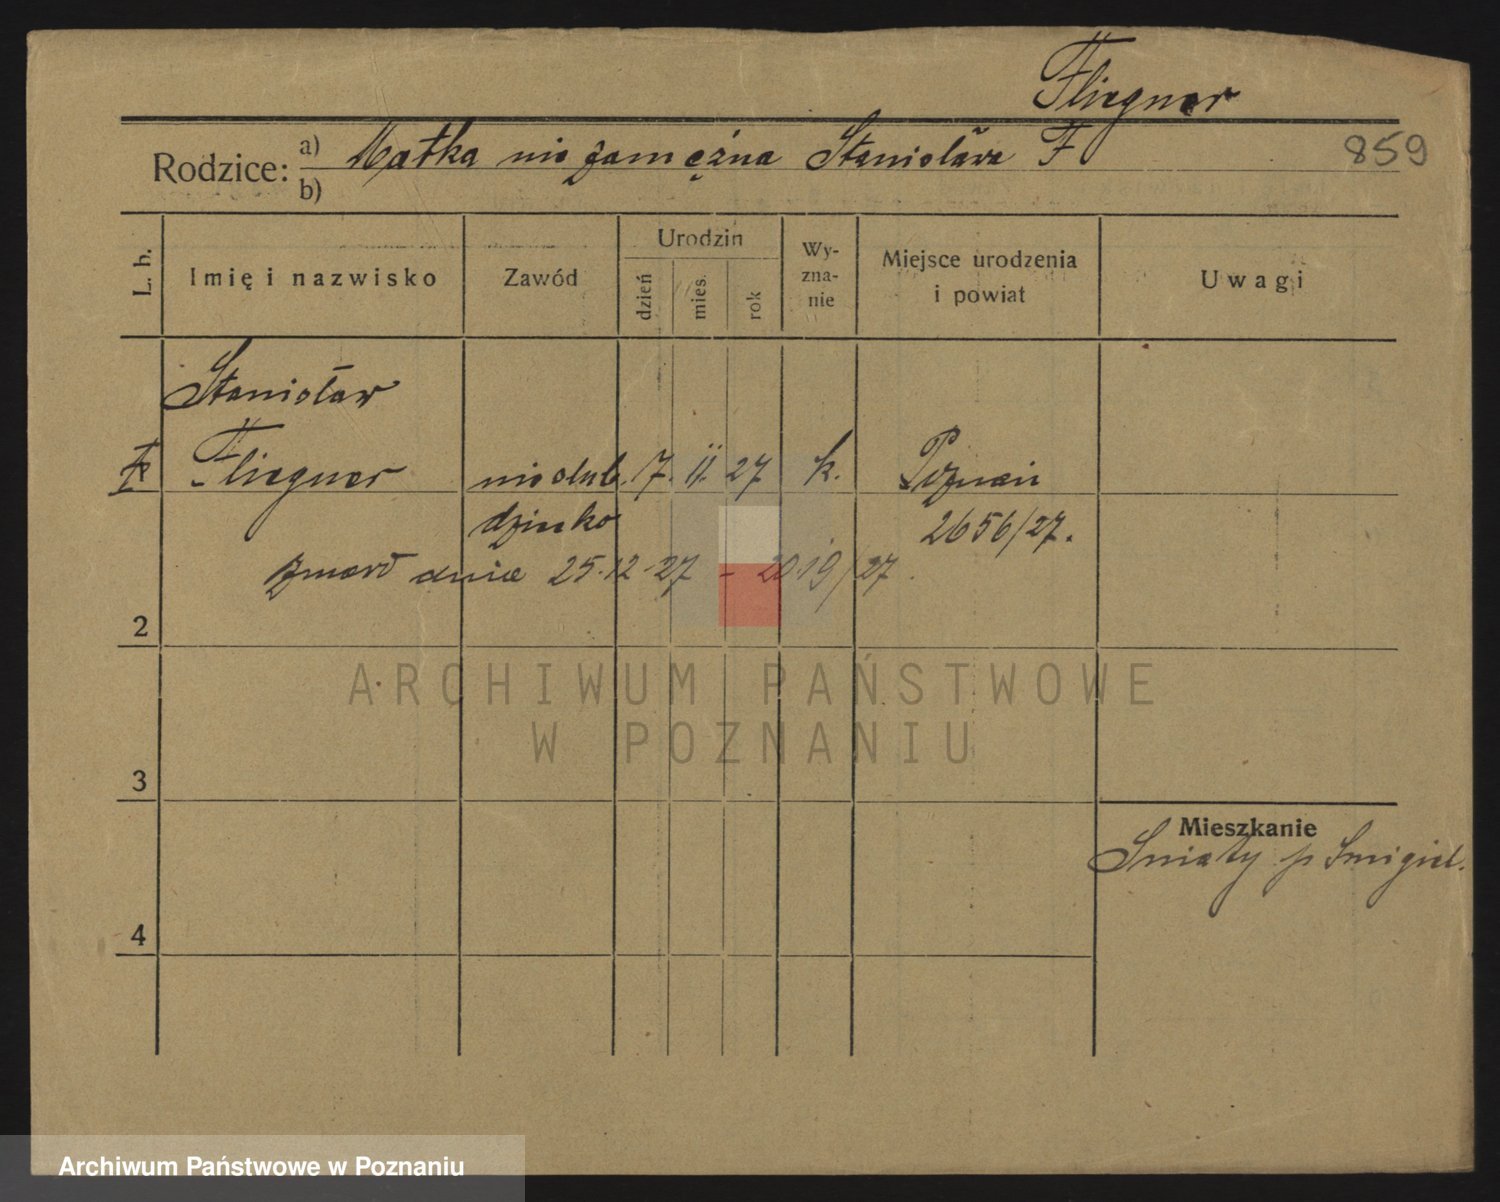 Fliegner
859
Rodzice: a) Matka niezamężna Stanisława F
b)
L. h.
Imię i nazwisko
Zawód
Urodzin
dzień
mies.
rok
Wy-
zna-
nie
Miejsce urodzenia
i powiat
Uwagi
Stanisław
Fliegner nieślub. 7. 11. 27 k. Poznań
dziecko 2656/27.
zmarł dnia 25.12.27 - 2019/27
2
ARCHIWUM PAŃSTWOWE
W POZNANIU
3
Mieszkanie
Śniaty p Śmigiel.
4
Archiwum Państwowe w Poznaniu